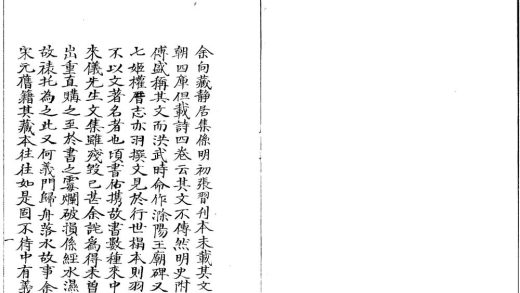 余向藏靜居集係明初張習刊本未載其文
朝四庫但載詩四卷云其文不傳然明史附
傳盛稱其文而洪武時命作滁陽王廟碑又
七姬權厝志亦羽撰文見於行世搨本則羽
不以文著名者也頃書佑携故書數種來中
來儀先生文集雖殘毀已甚余詫為得未曽
出重直購之至於書之霉爛破損係經水濕
故裱托為之此又何義門歸舟落水故事余
宋元舊籍其藏本往往如是固不待中有義
一